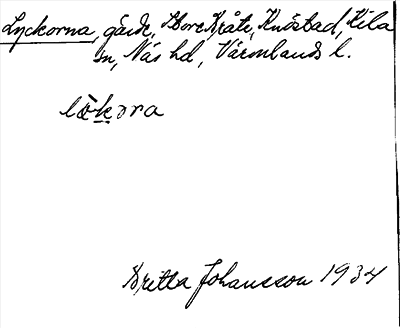 Lyckorna, gärde, Stora Kråk, Knösbad, Kila
sn, Näs hd, Värmlands l.
lökǝra
Britta Johansson 1934